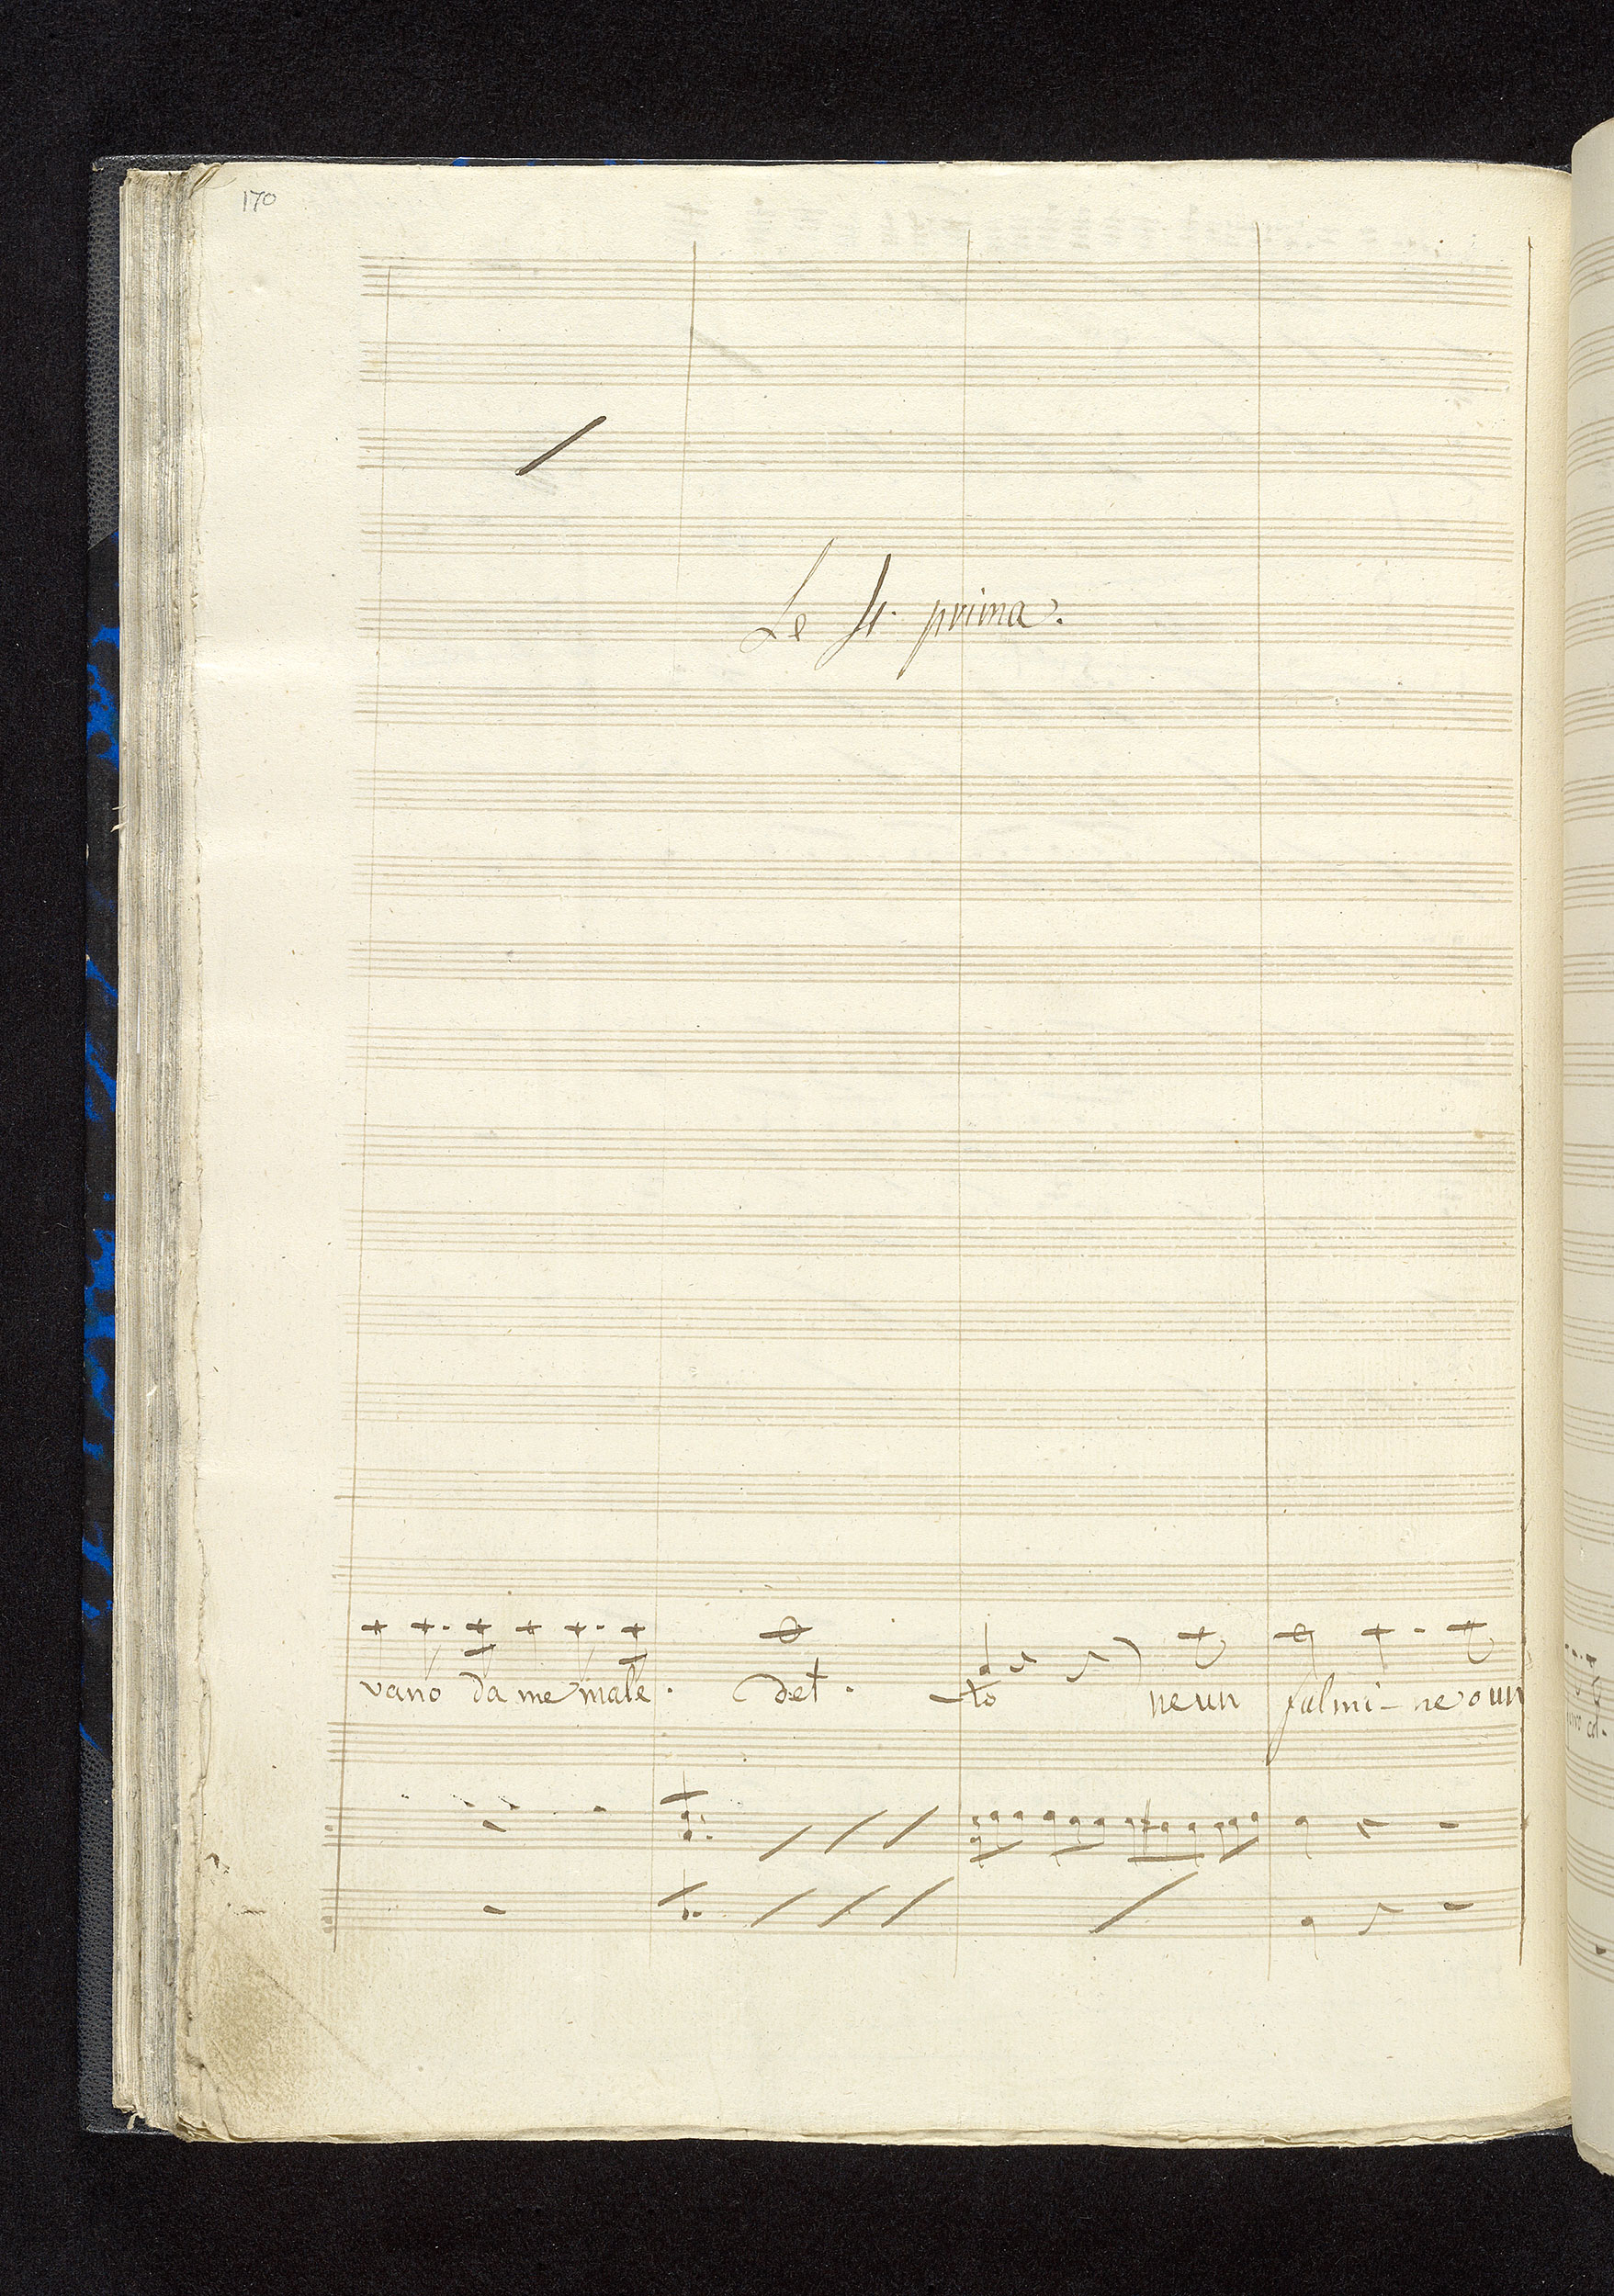 170
Le 4. prima.
vano da me male. det. -to ne un fulmi-ne o un